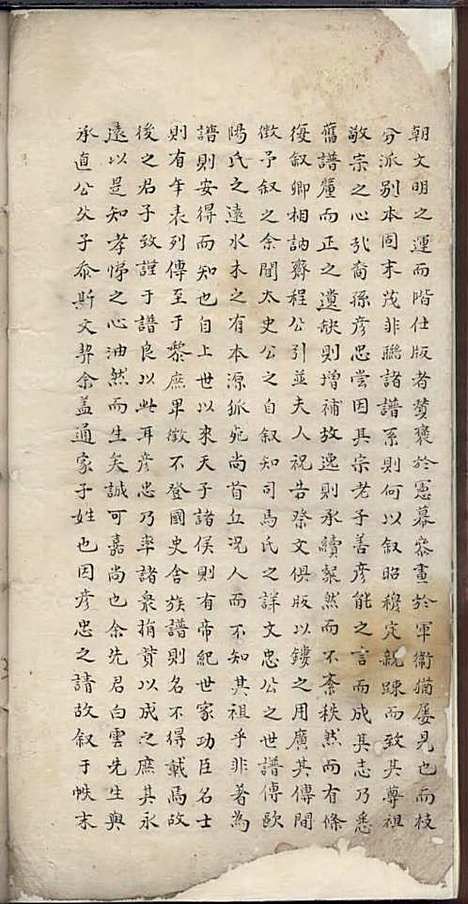 朝文明之運而階仕版者贊襄於憲幕參畫於軍衛猶屢見也而枝
分派别本固末茂非聯諸譜系則何以叙昭穆定親踈而致其尊祖
敬宗之心哉裔孫彦忠嘗因其宗老子善彦能之言而成其志乃悉
舊譜釐而正之遺缺則增補故逸則承續粲然而不紊秩然而有條
復叙卿相訥齋程公引並夫人祝告祭文俱版以鏤之用廣其傳間
徵予叙之余聞太史公之自叙知司馬氏之詳文忠公之世譜傳歐
陽氏之遠水木之有本源狐兔尚首丘况人而不知其祖乎非著為
譜則安得而知也自上世以來天子諸侯則有帝紀世家功臣名士
則有年表列傳至于黎庶卑微不登國史舍族譜則名不得載焉故
後之君子致謹于譜良以此耳彦忠乃率諸衆捐貲以成之庶其永
遠以是知孝悌之心油然而生矣誠可嘉尚也余先君白雲先生與
承直公父子忝斯文契余盖通家子姓也因彦忠之請故叙于帙末